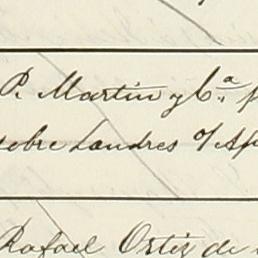 P. Martin y Ca. p
tebre Landres o/ Ap
Rafael Ortiz de